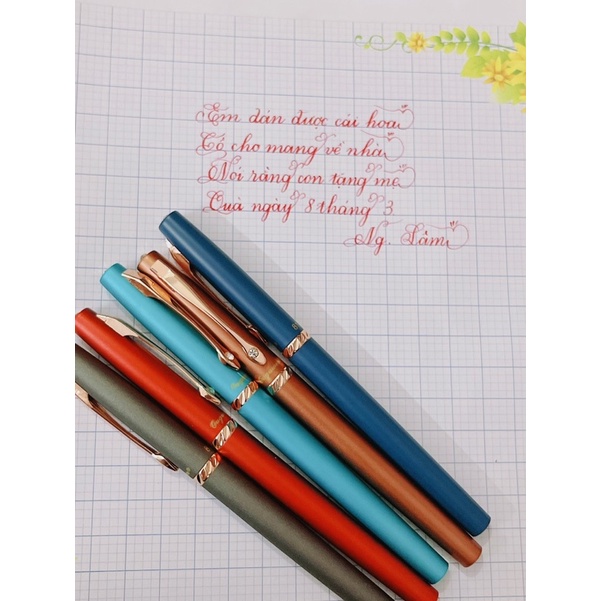 Em dán được cái hoa
Cô cho mang về nhà
Nói rằng con tặng mẹ
Quà ngày 8 tháng 3
Ng. Lâm